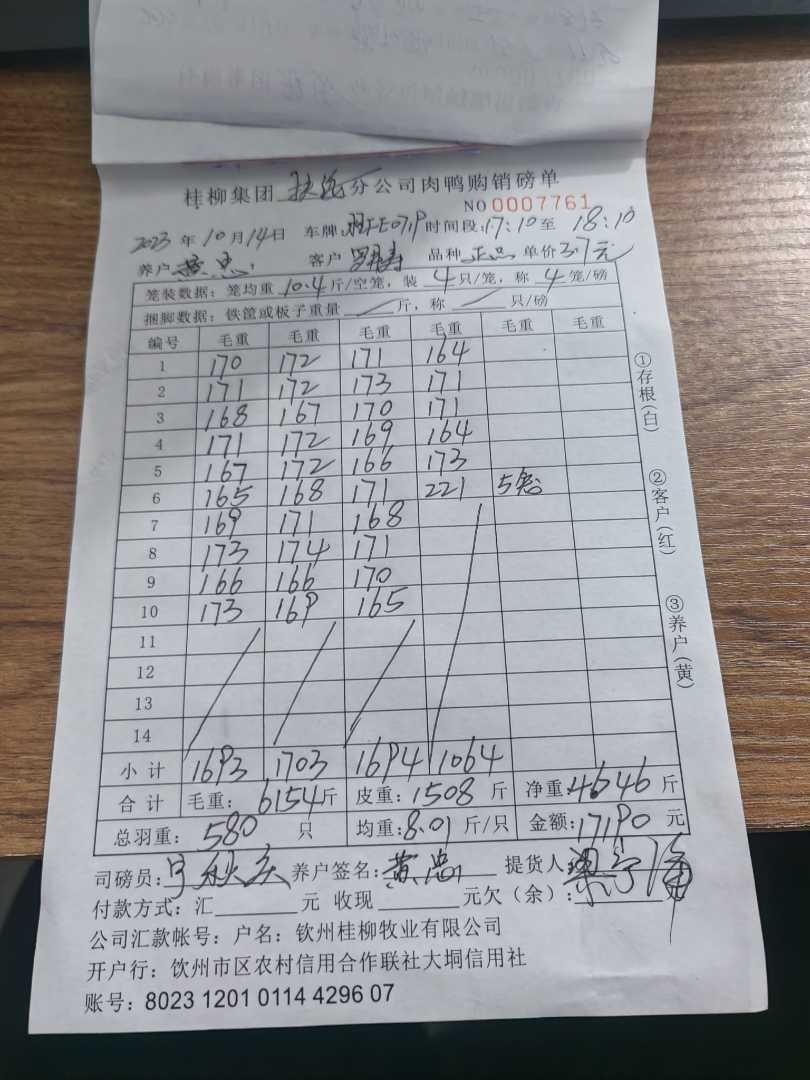 桂柳集团 扶绥 分公司肉鸭购销磅单
NO 0007761
2023 年 10 月 14 日 车牌: 时间段: 17:10 至 18:10
养户 黄忠 客户 品种 正品 单价 3.7 元
笼装数据: 笼均重 10.4 斤/空笼, 装 4 只/笼, 称 4 笼/磅
捆脚数据: 铁筐或板子重量 / 斤, 称 / 只/磅
编号 毛重 毛重 毛重 毛重 毛重 毛重
1 170 172 171 164
2 171 172 173 171
3 168 167 170 171
4 171 172 169 164
5 167 172 166 173
6 165 168 171 221 5笼
7 169 171 168
8 173 174 171
9 166 166 170
10 173 169 165
11
12
13
14
小计 1693 1703 1694 1064
合计 毛重: 6154 斤 皮重: 1508 斤 净重: 4646 斤
总羽重: 580 只 均重: 8.01 斤/只 金额: 17190 元
司磅员: 养户签名: 黄忠 提货人:
付款方式: 汇 元 收现 元欠(余): 元
公司汇款帐号: 户名: 钦州桂柳牧业有限公司
开户行: 钦州市区农村信用合作联社大垌信用社
账号: 8023 1201 0114 4296 07
①存根(白)
②客户(红)
③养户(黄)